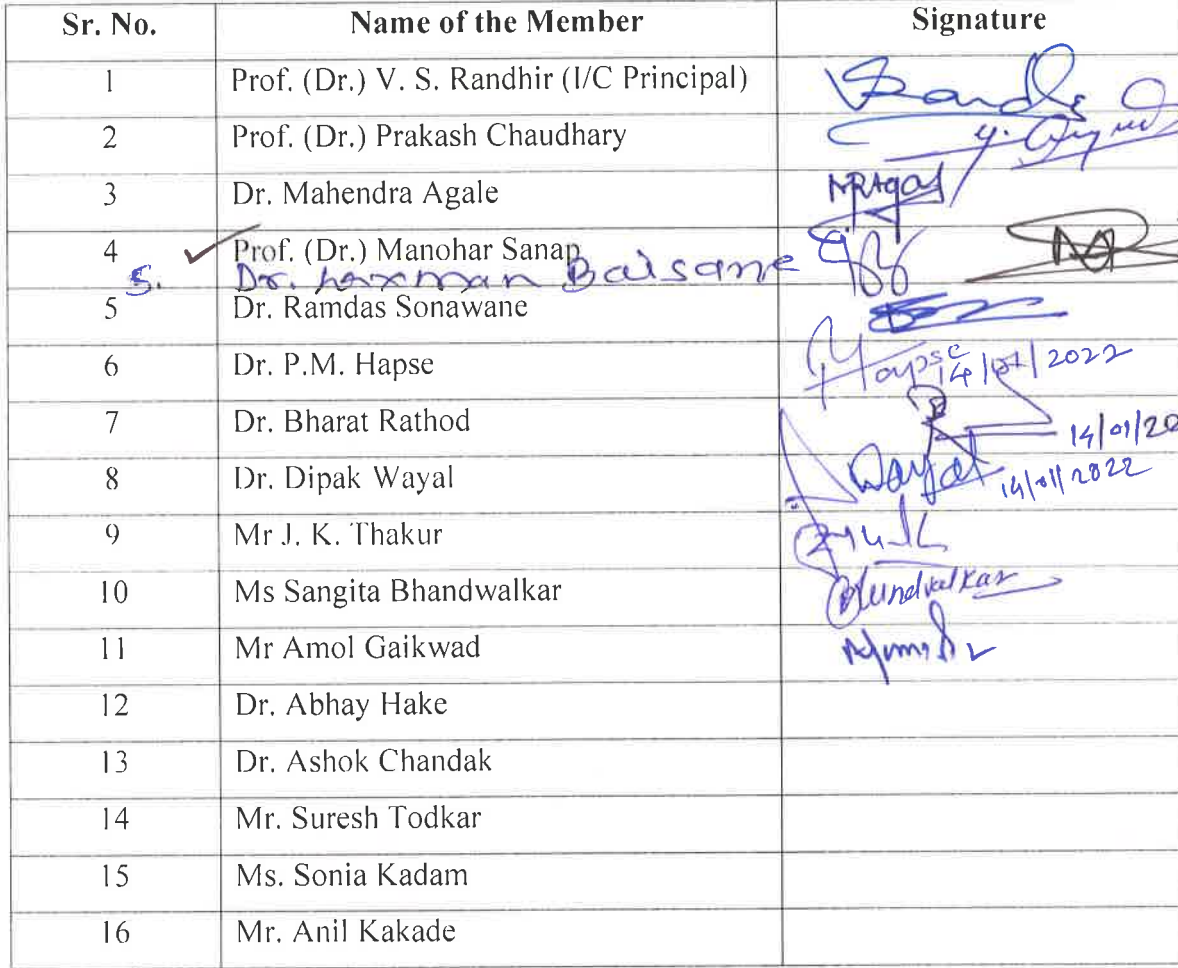 Sr. No. Name of the Member Signature
1 Prof. (Dr.) V. S. Randhir (I/C Principal)
2 Prof. (Dr.) Prakash Chaudhary
3 Dr. Mahendra Agale
4 Prof. (Dr.) Manohar Sanap
5. Dr. Laxman Baisane
5 Dr. Ramdas Sonawane
6 Dr. P.M. Hapse Hapse 14/01/2022
7 Dr. Bharat Rathod 14/01/20
8 Dr. Dipak Wayal Wayal 14/01/2022
9 Mr J. K. Thakur
10 Ms Sangita Bhandwalkar
11 Mr Amol Gaikwad
12 Dr. Abhay Hake
13 Dr. Ashok Chandak
14 Mr. Suresh Todkar
15 Ms. Sonia Kadam
16 Mr. Anil Kakade